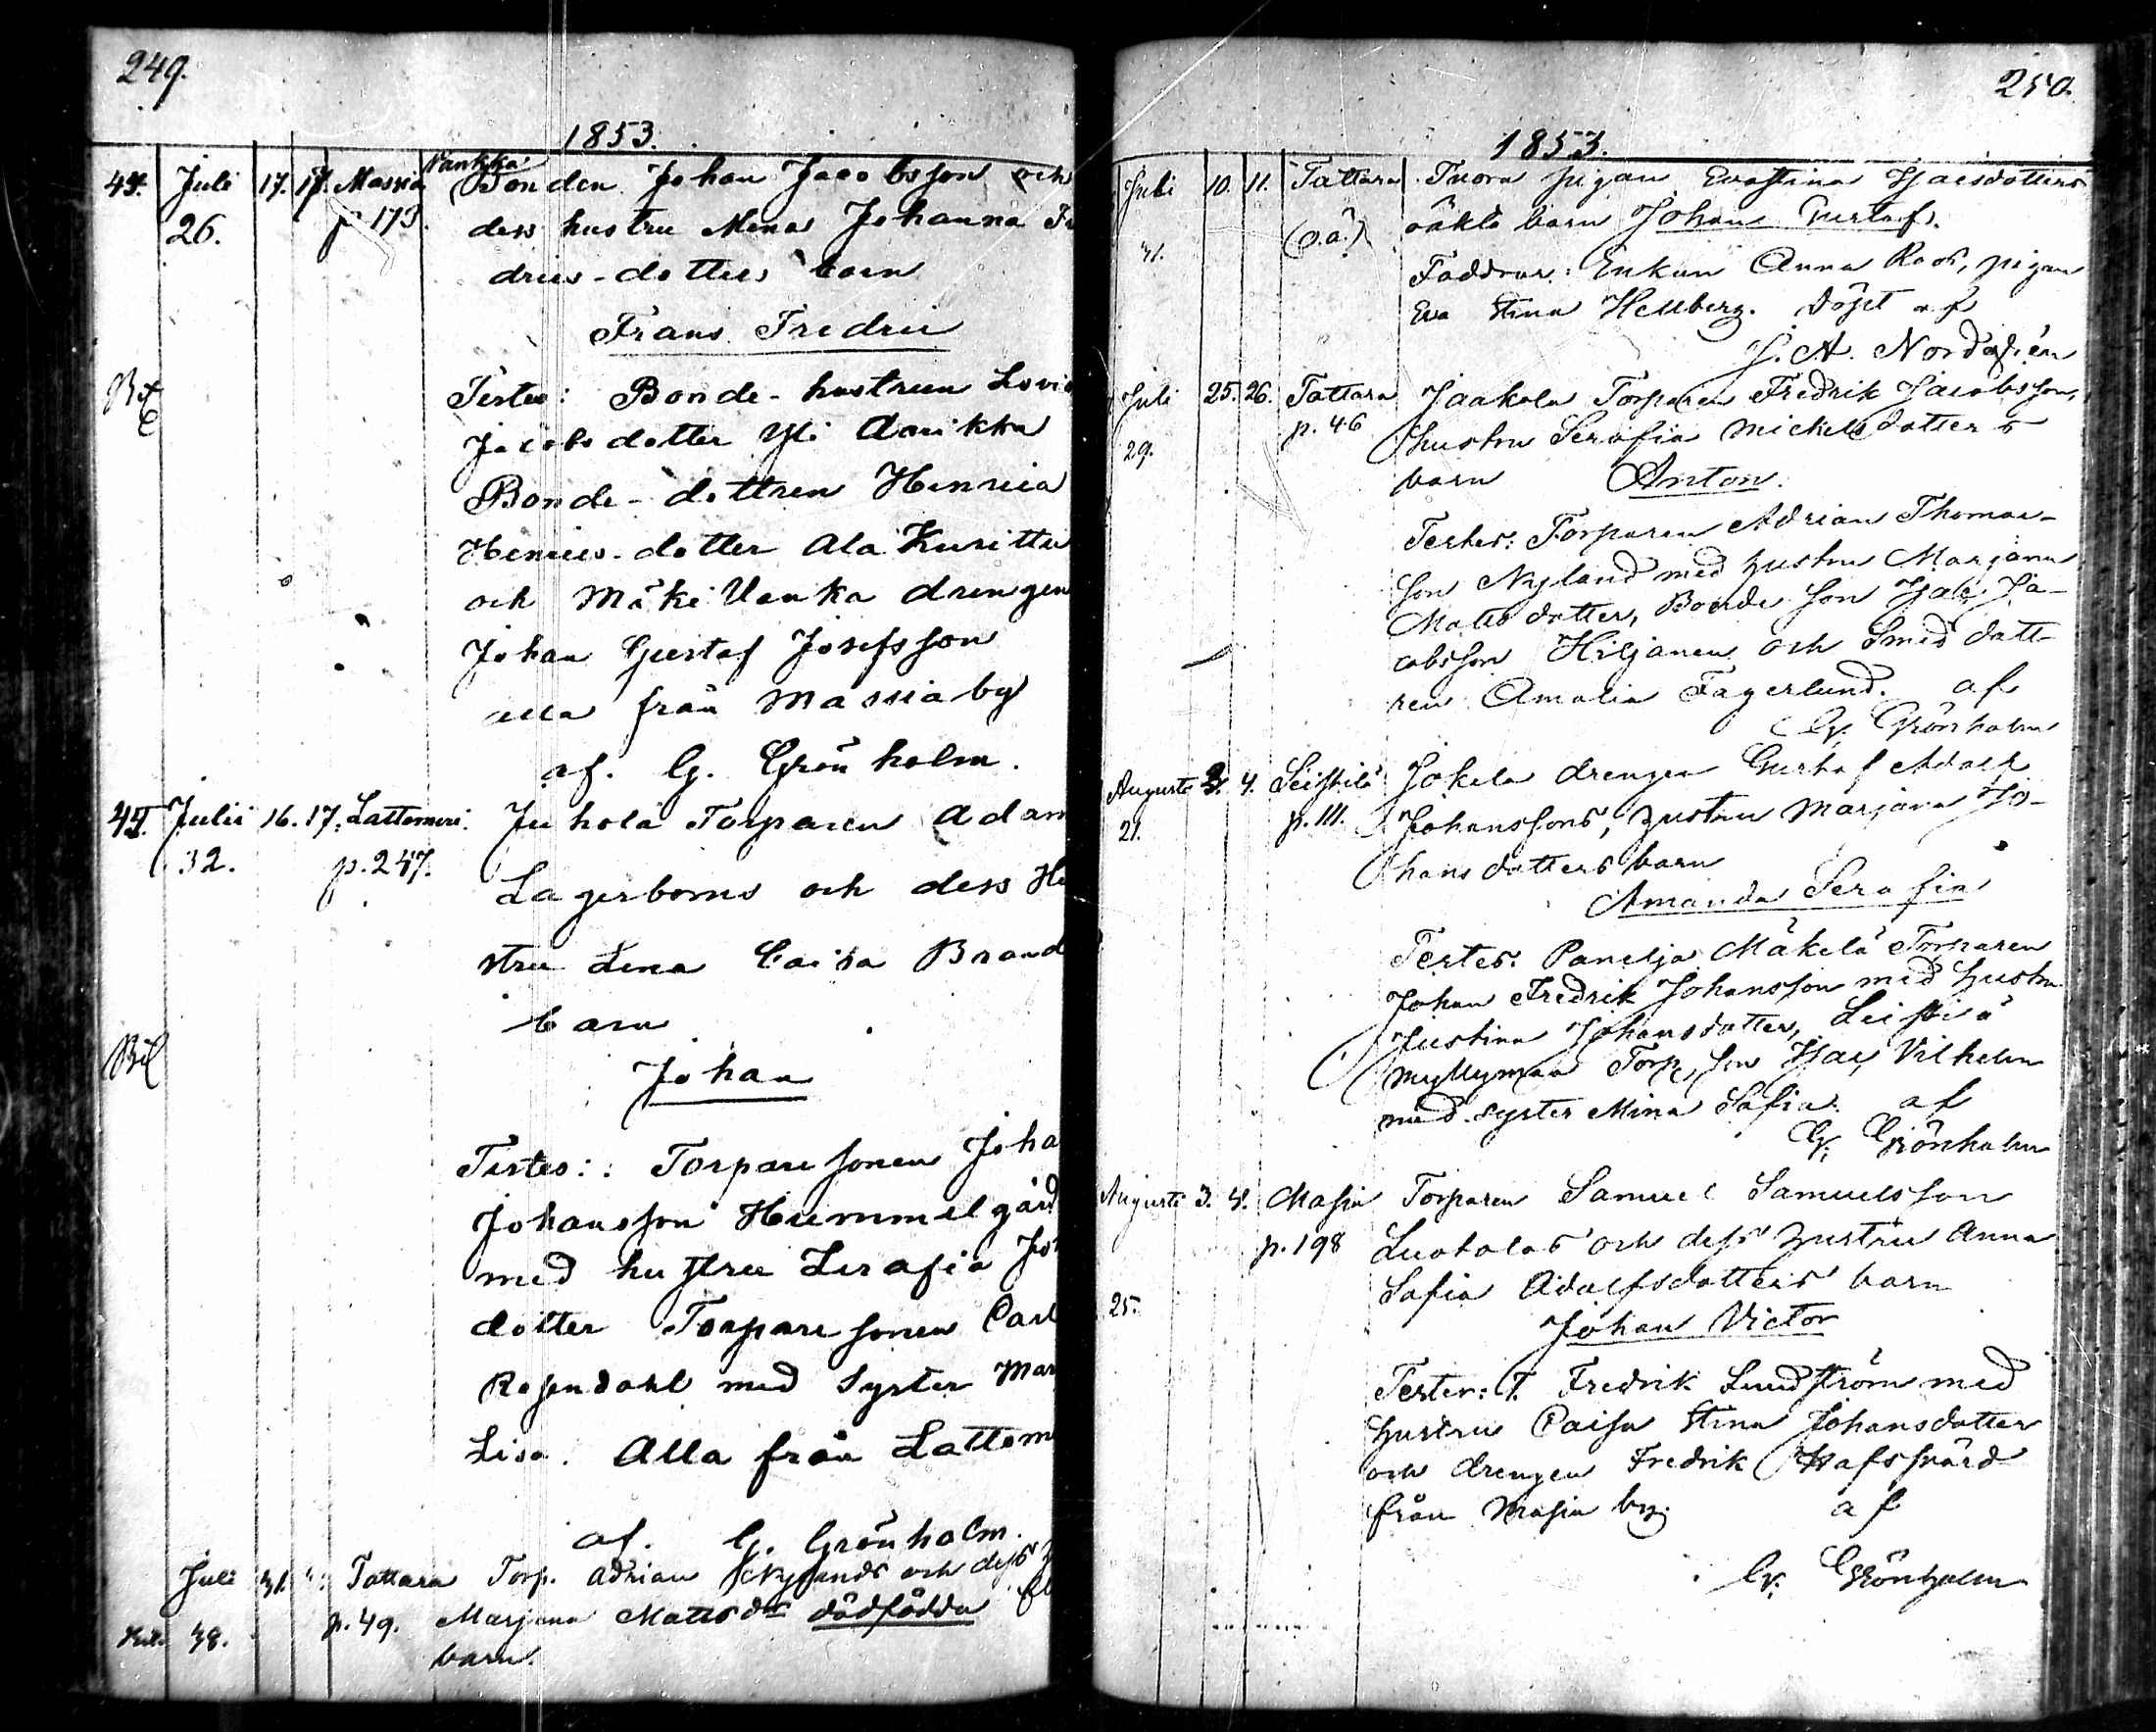 249.
1853.
Vankka
43. Juli 17. 17. Massia Bonden Johan Jacobsson och
26. p. 173. dess hustru Mina Johanna Fr
drics-dotters barn
Frans Fredric
Testes: Bonde-hustrun Lovis
Jacobsdotter Yli Aarikka
Bonde-dottren Henrica
Henrics-dotter Ala Kuritta
och Mäki Vanka drengen
Johan Gustaf Josefsson
alla från Massia by
af. G. Grönholm.
44. Julii 16. 17. Lattomeri. Juhola Torparen Adam
32. p. 247. Lagerboms och dess Hu
stru Lena Caisa Brand
barn
Johan
Testes: Torpare sonen Joha
Johansson Hummelgård
med hustru Serafia Jo
dotter Torpare sonen Carl
Rosendahl med Syster Mar
Lisa. Alla från Lattom
af. G. Grönholm.
Juli 31. Tattara Torp. Adrian Nylands och dess
38. p. 49. Marjana Mattsdr dödfödda
barn.
250.
1853.
Juli 10. 11. Tattara Tuora pigan Eva Stina Isacsdotters
31. (o.ä.) oäkta barn Johan Gustaf.
Faddrar: Enkan Anna Roos, pigan
Eva Stina Hellberg. Döpt af
J. A. Nordgrén
Juli 25. 26. Tattara Jaakola Torparen Fredrik Jacobsson,
29. p. 46 hustru Serafia Mickelsdotters
barn Anton.
Testes: Torparen Adrian Thomas-
son Nyland med hustru Marjana
Matts dotter, Bonde son Isac Ja-
cobsson Hiljanen och Smed dott-
ren Amalia Fagerlund. af
G. Grönholm
Augusti 3. 4. Leistilä Jokela drengen Gustaf Adolf
21. p. 111. Johanssons, hustru Marjana Jo-
hans dotters barn
Amanda Serafia
Testes: Panelja Mäkelä Torparen
Johan Fredrik Johansson med hustru
Justina Johansdotter, Leistilä
Myllymaa Torp. son Isac Vilhelm
med syster Mina Sofia. af
G. Grönholm
Augusti 3. 4. Massia Torparen Samuel Samuelsson
p. 198 Luotolas och dess hustru Anna
25. Sofia Adolfsdotters barn
Johan Victor
Testes: T. Fredrik Lundström med
hustru Caisa Stina Johansdotter
och drengen Fredrik Hafssvärd
från Massia by. af
G. Grönholm